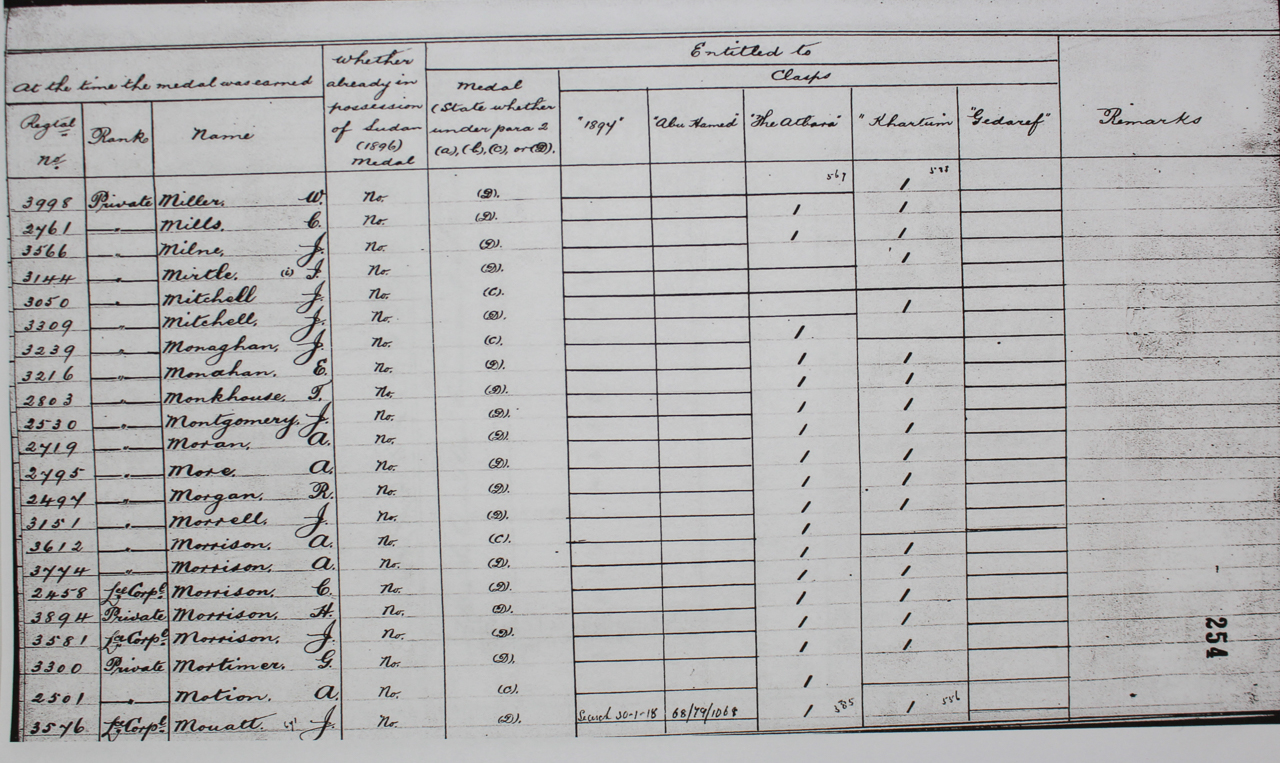 At the time the medal was earned
Whether already in possession of Sudan (1896) Medal
Entitled to
Medal (State whether under para 2 (a), (b), (c), or (D).
Clasps
Regtal No. Rank Name "1897" "Abu Hamed" "The Atbara" "Khartum" "Gedaref" Remarks
3998 Private Miller. W. No. (D). /
2761 " Mills. C. No. (D). / /
3566 " Milne. J. No. (D). / /
3144 " Mirtle. J. No. (D). /
3050 " Mitchell J. No. (C).
3309 " Mitchell. J. No. (D). /
3239 " Monaghan. J. No. (C). /
3216 " Monahan. E. No. (D). / /
2803 " Monkhouse. T. No. (D). / /
2530 " Montgomery. J. No. (D). / /
2719 " Moran. A. No. (D). / /
2795 " More. A. No. (D). / /
2497 " Morgan. R. No. (D). / /
3151 " Morrell. J. No. (D). / /
3612 " Morrison. A. No. (C). /
3774 " Morrison. A. No. (D). / /
2458 Lce Corpl. Morrison. C. No. (D). / /
3894 Private Morrison. H. No. (D). / /
3581 Lce Corpl. Morrison. J. No. (D). / /
3300 Private Mortimer. G. No. (D). / /
2501 " Motion. A. No. (C). /
3576 Lce Corpl. Mouatt. J. No. (D). 30-1-18 68/79/1068 / 385 / 556
254